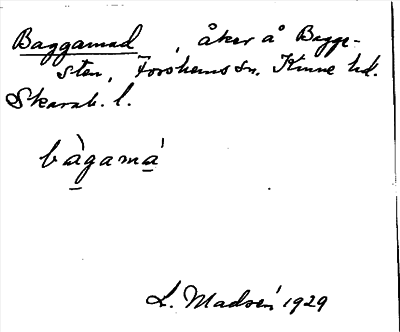 Baggamad, åker å Bagge-
sten, Forshems sn. Kinne hd.
Skarab. l.
bàgamá
L. Madsén 1929